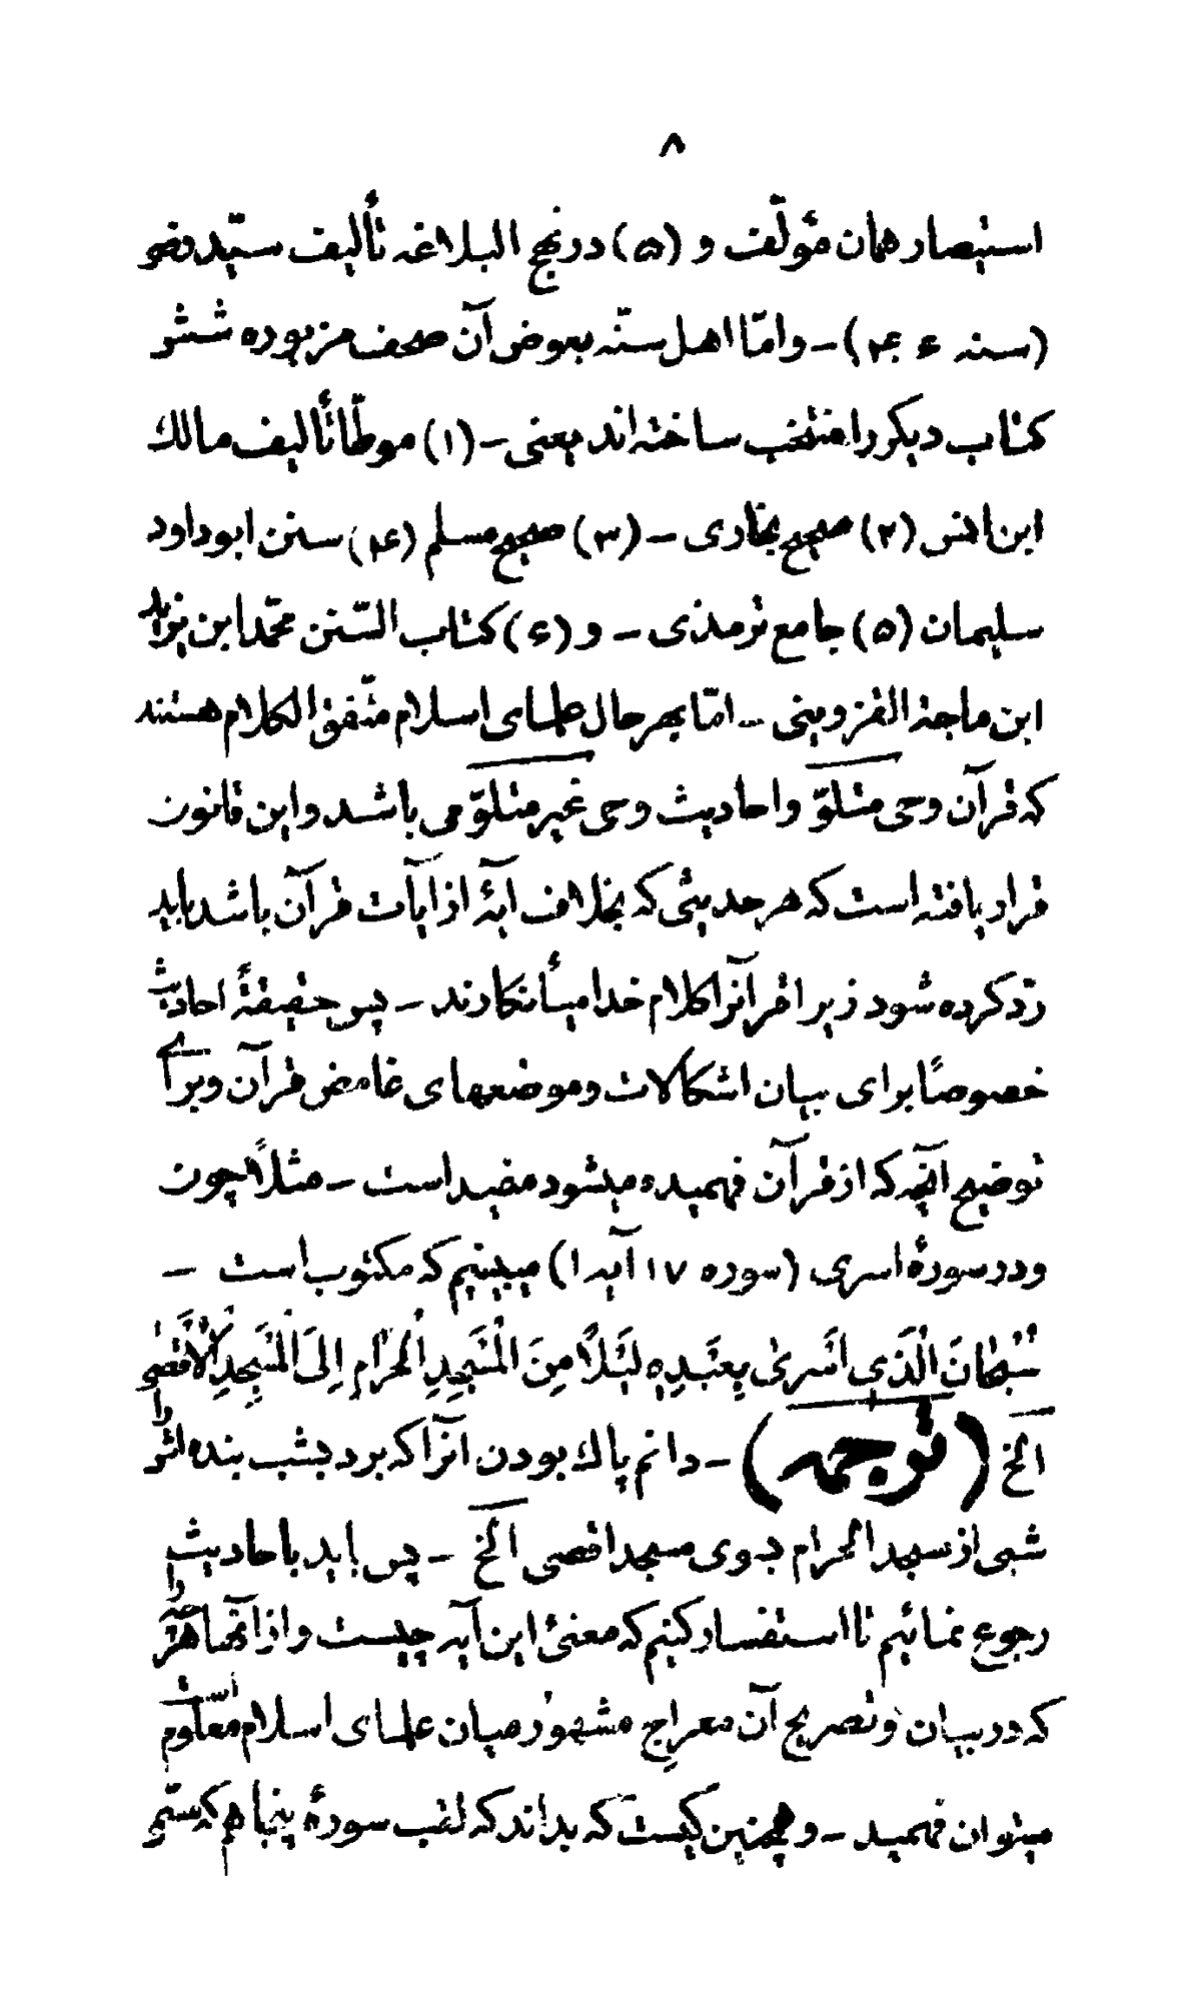 ۸
استبصار همان مؤلّف و (۵) در نهج البلاغه تألیف سیّد رضی
(سنه ۴۰۶) - وامّا اهل سنّه بعوض آن صحف مزبوره شش
کتاب دیگر را منتخب ساخته‌اند یعنی - (۱) موطّا تألیف مالک
ابن انس (۲) صحیح بخاری - (۳) صحیح مسلم (۴) سنن ابو داود
سلیمان (۵) جامع ترمذی - و (۶) کتاب السّنن محمّد ابن یزید
ابن ماجة القزوینی - امّا بهر حال علمای اسلام متّفق الکلام هستند
که قرآن وحی متلوّ واحادیث وحی غیر متلوّ می باشد واین قانون
قرار یافته است که هر حدیثی که بخلاف آیهٔ از آیات قرآن باشد باید
ردّ کرده شود زیرا قرآنرا کلام خدا میأنگارند - پس حقیقةً احادیث
خصوصًا برای بیان اشکالات وموضعهای غامض قرآن وبرای
توضیح آنچه که از قرآن فهمیده میشود مفید است - مثلاً چون
ودر سورهٔ اسری (سوره ۱۷ آیه ۱) میبینیم که مکتوب است -
سُبْحَانَ الَّذِی اَسْرَىٰ بِعَبْدِهِ لَیْلًا مِنَ الْمَسْجِدِ الْحَرَامِ اِلَى الْمَسْجِدِ الْأَقْصَى
الخ (ترجمه) - دانم پاک بودن آنرا که برد بشب بنده اش را
شبی از مسجد الحرام بسوی مسجد اقصی الخ - پس باید باحادیث
رجوع نمائیم تا استفسار کنیم که معنیٔ این آیه چیست واز آنها هر آنچه را
که در بیان وتصریح آن معراج مشهور میان علمای اسلام معلوم است
میتوان فهمید - وهمچنین کیست که بداند که لقب سورهٔ پنجاهم که مسمّی